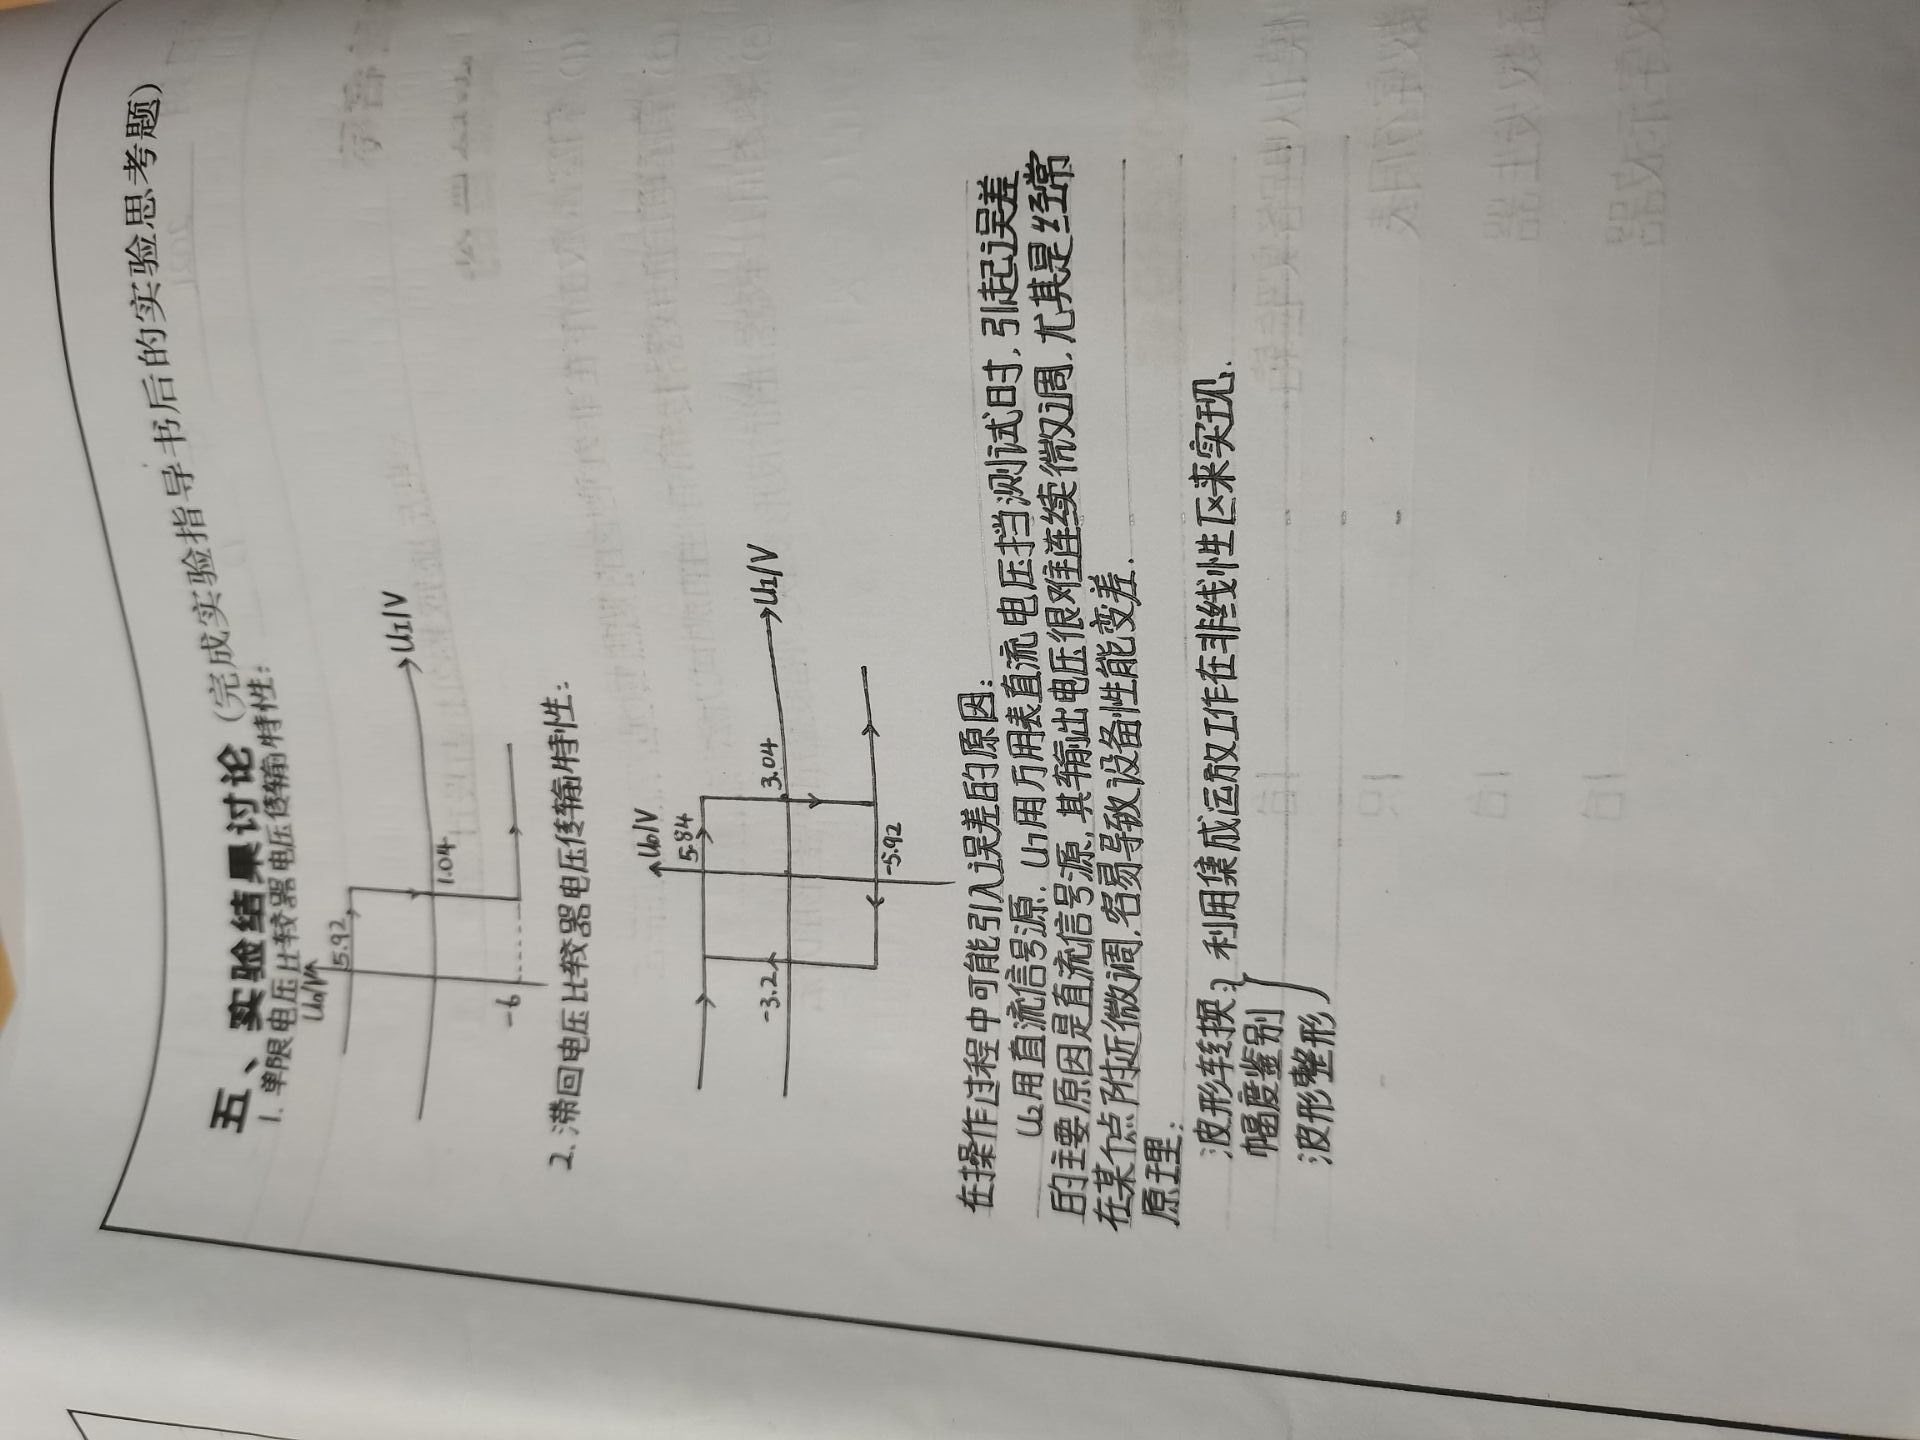 五、实验结果讨论(完成实验指导书后的实验思考题)
1. 单限电压比较器电压传输特性:
U₀/V
5.92
U_I/V
1.04
-6
2. 滞回电压比较器电压传输特性:
U₀/V
5.84
-3.2
3.04
U_I/V
-5.92
在操作过程中可能引入误差的原因:
U₂用直流信号源, U₇用万用表直流电压挡测试时, 引起误差
的主要原因是直流信号源, 其输出电压很难连续微调, 尤其是经常
在某个点附近微调, 容易导致设备性能变差.
原理:
波形转换 } 利用集成运放工作在非线性区来实现.
幅度鉴别
波形整形